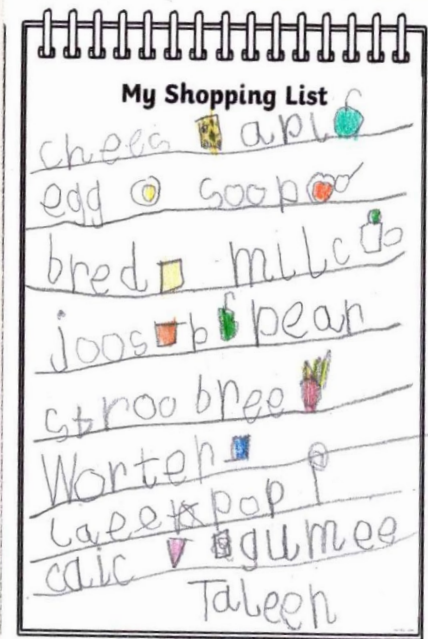 My Shopping List
chees apl
egg soop
bred milc
joos p pear
stroobree
Worter
laee pop
caic gumee
Taleen